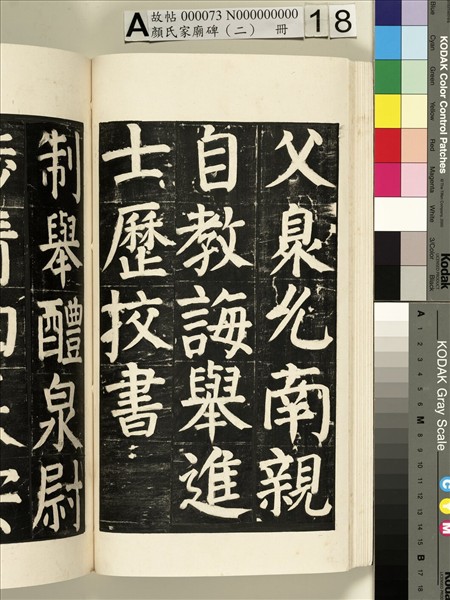 A 故帖 000073 N000000000 18
顏氏家廟碑（二） 冊
父臮允南親
自教誨舉進
士歷挍書
制舉醴泉尉
KODAK Color Control Patches
Blue
Cyan
Green
Yellow
Red
Magenta
White
3/Color
Black
Kodak
KODAK Gray Scale
A 1 2 3 4 5 6 M 8 9 10 11 12 13 14 15 B 17 18
C Y M
Kodak